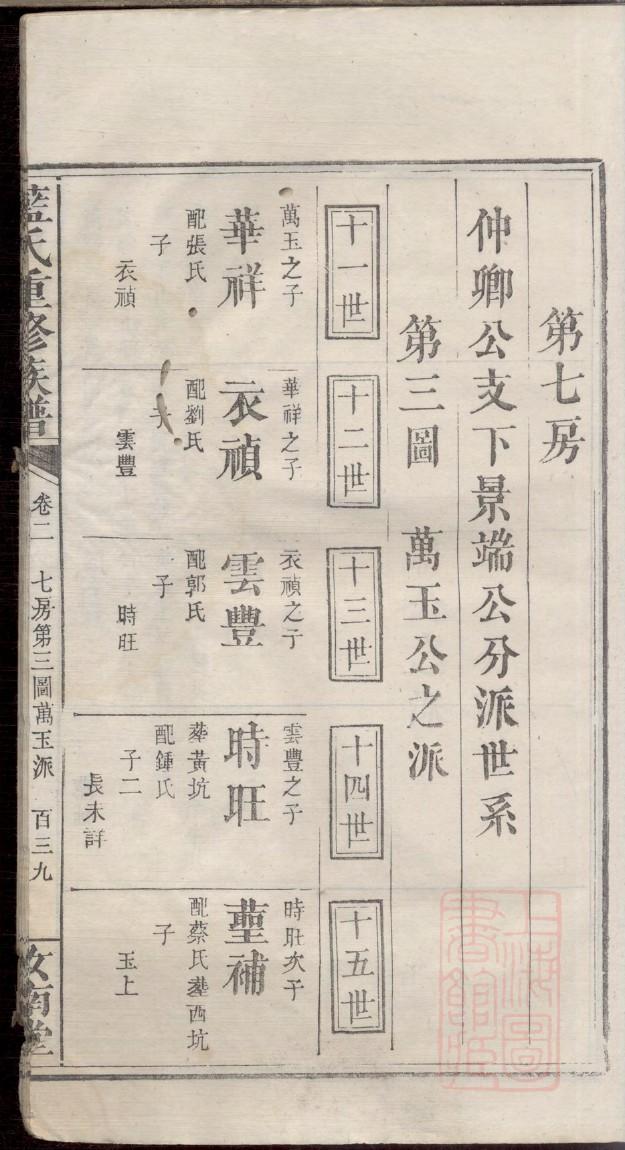 第七房
仲卿公支下景端公分派世系
第三圖 萬玉公之派
十一世
十二世
十三世
十四世
十五世
萬玉之子
華祥
配張氏
子
衣禎
華祥之子
衣禎
配劉氏
子
雲豐
衣禎之子
雲豐
配郭氏
子
時旺
雲豐之子
時旺
葬黃坑
配鍾氏
子二
長未詳
時旺次子
補
配蔡氏葬西坑
子
玉上
藍氏重修族譜
卷二 七房第三圖萬玉派 百三九
汝南堂
上海圖書館藏